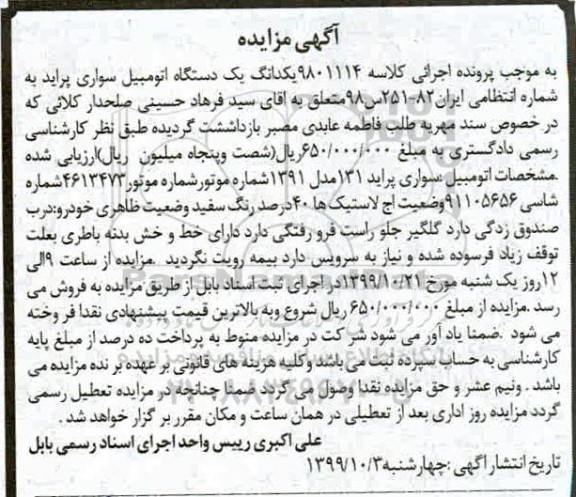 آگهی مزایده
به موجب پرونده اجرائی کلاسه ۹۸۰۱۱۱۴یکدانگ یک دستگاه اتومبیل سواری پراید به
شماره انتظامی ایران۸۲-۲۵۱س۹۸متعلق به اقای سید فرهاد حسینی صلحدار کلائی که
در خصوص سند مهریه طلب فاطمه عابدی مصیر بازداشت گردیده طبق نظر کارشناسی
رسمی دادگستری به مبلغ ۶۵۰/۰۰۰/۰۰۰ریال(شصت وپنجاه میلیون ریال)ارزیابی شده
.مشخصات اتومبیل :سواری پراید ۱۳۱مدل ۱۳۹۱شماره موتورشماره موتور۴۶۱۳۴۷۳شماره
شاسی ۹۱۱۰۵۶۵۶وضعیت اج لاستیک ها ۴۰درصد رنگ سفید وضعیت ظاهری خودرو:درب
صندوق زدگی دارد گلگیر جلو راست فرو رفتگی دارد دارای خط و خش بدنه باطری بعلت
توقف زیاد فرسوده شده و نیاز به سرویس دارد بیمه رویت نگردید .مزایده از ساعت ۹الی
۱۲روز یک شنبه مورخ ۱۳۹۹/۱۰/۲۱در اجرای ثبت اسناد بابل از طریق مزایده به فروش می
رسد .مزایده از مبلغ ۶۵۰/۰۰۰/۰۰۰ ریال شروع وبه بالاترین قیمت پیشنهادی نقدا فروخته
می شود .ضمنا یاد آور می شود شرکت در مزایده منوط به پرداخت ده درصد از مبلغ پایه
کارشناسی به حساب سپرده ثبت می باشد وکلیه هزینه های قانونی بر عهده برنده مزایده می
باشد . ونیم عشر و حق مزایده نقدا وصول می گردد ضمنا چنانچه در مزایده تعطیل رسمی
گردد مزایده روز اداری بعد از تعطیلی در همان ساعت و مکان مقرر برگزار خواهد شد .
علی اکبری رییس واحد اجرای اسناد رسمی بابل
تاریخ انتشار اگهی :چهارشنبه۱۳۹۹/۱۰/۳